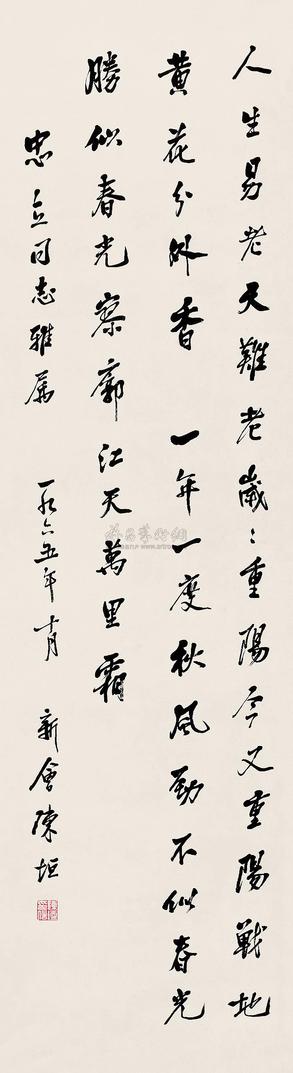 人生易老天難老歲〻重陽今又重陽戰地
黄花分外香 一年一度秋風勁不似春光
勝似春光寥廓江天萬里霜
忠立同志雅属 一九六五年十月 新會陳垣